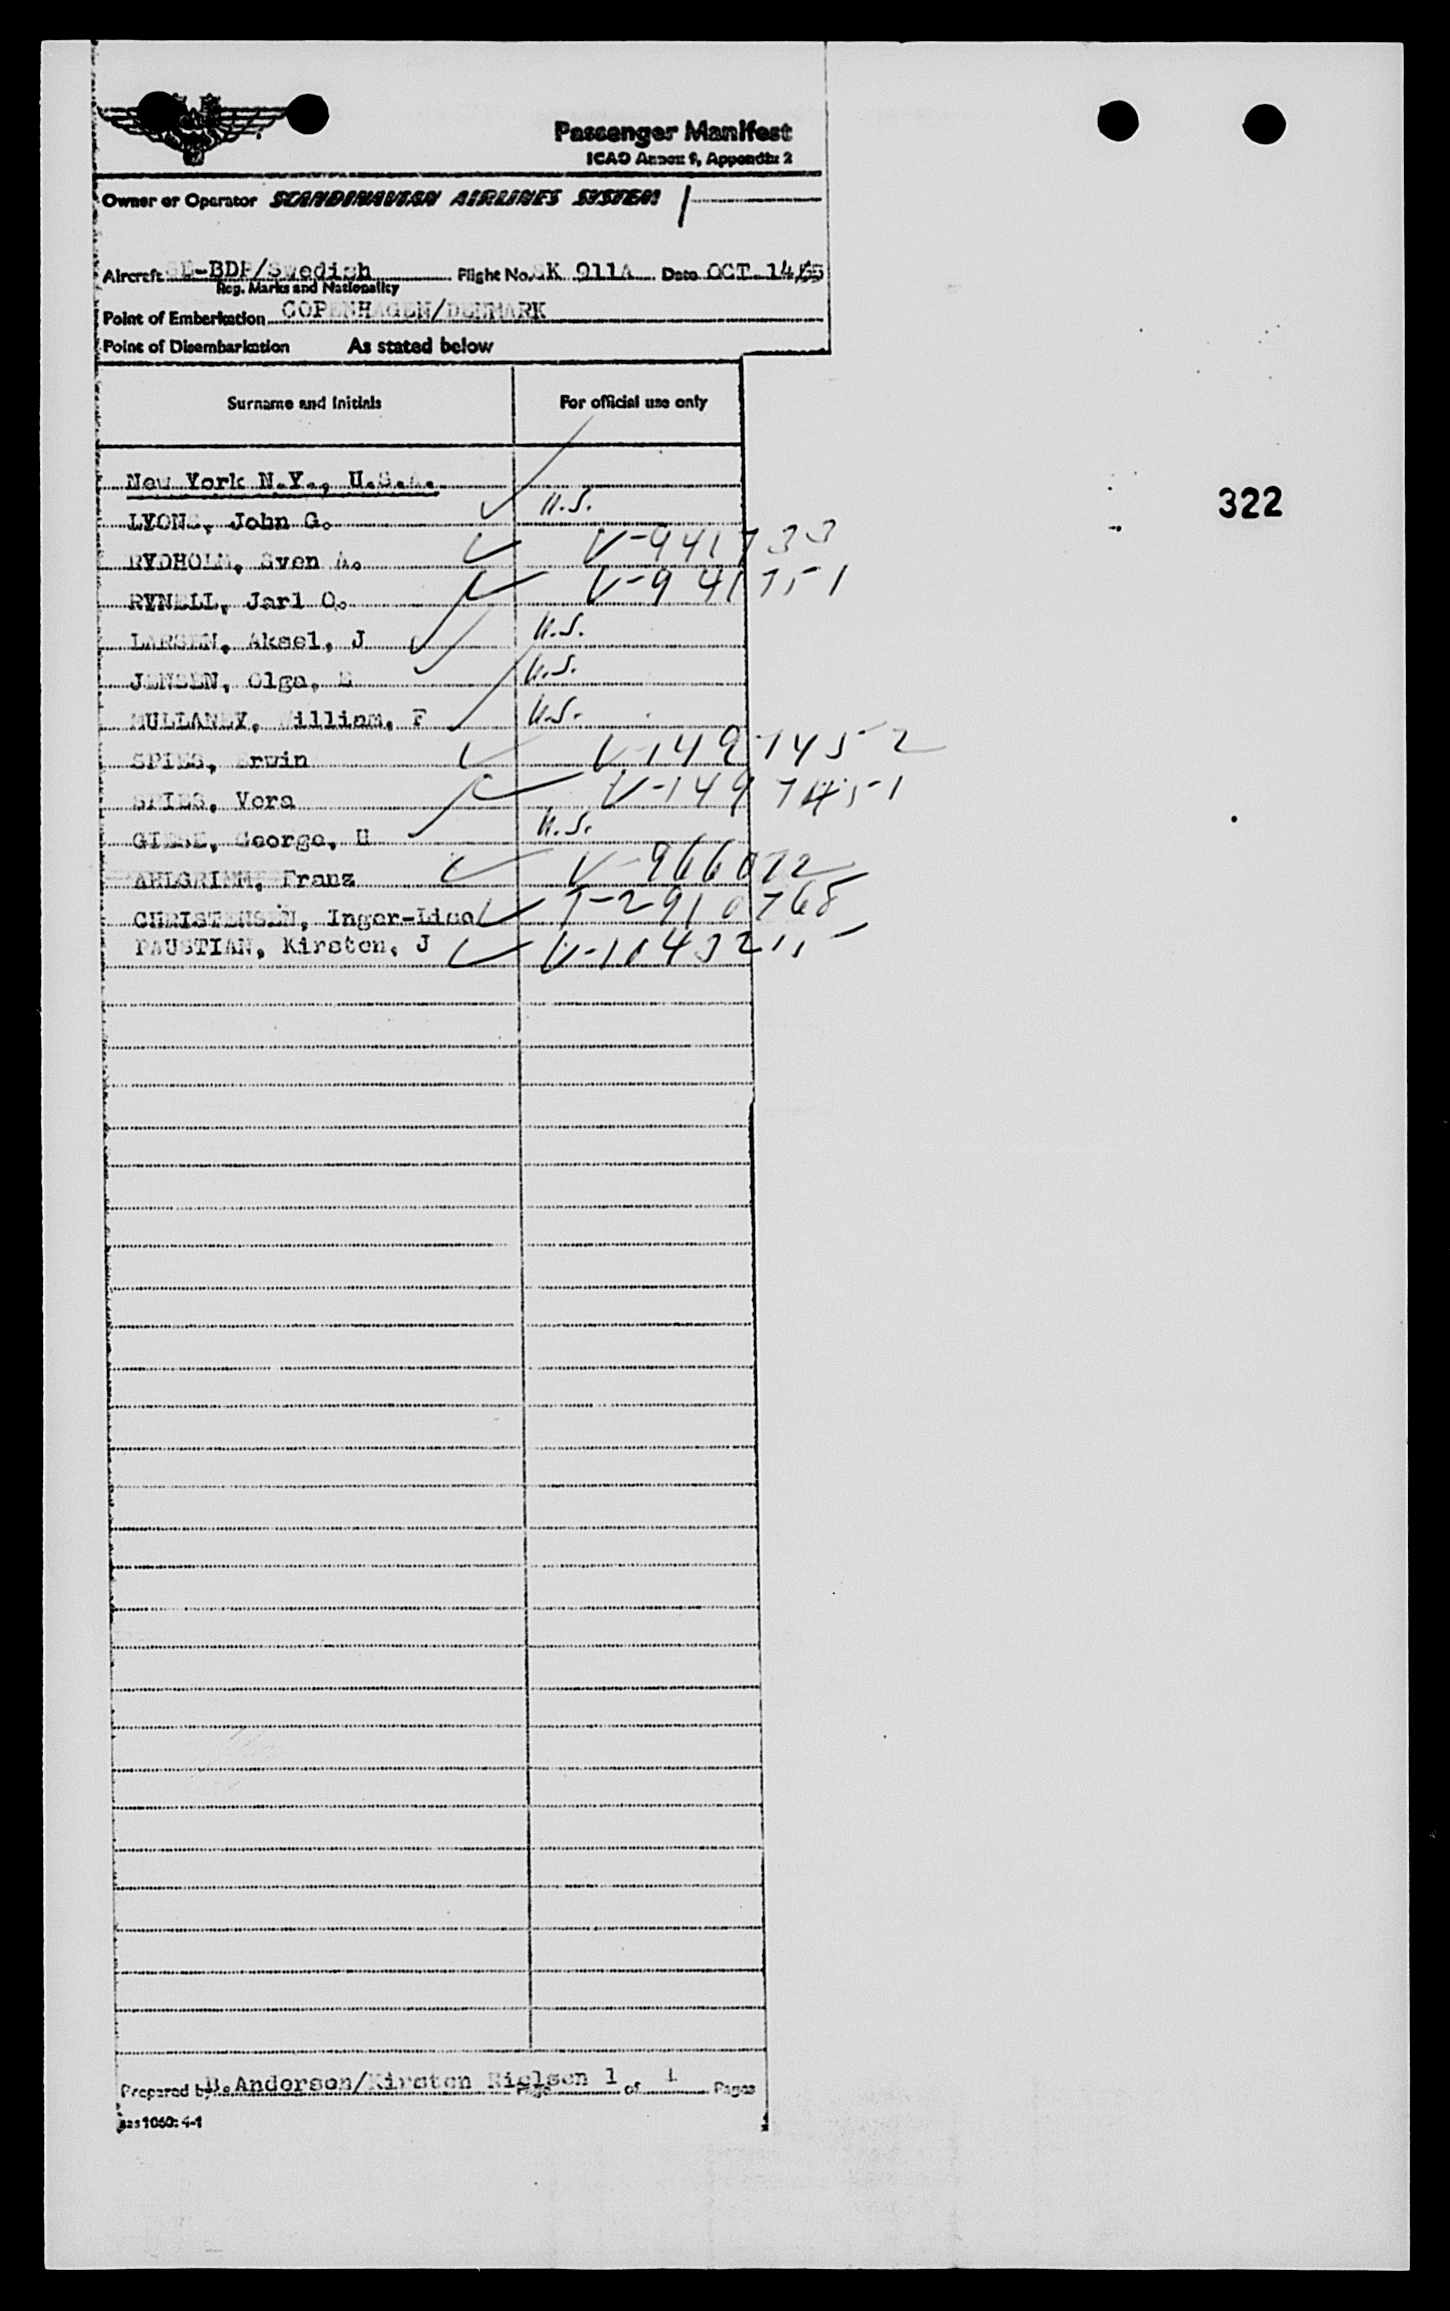 Passenger Manifest
ICAO Annex 9, Appendix 2
Owner or Operator SCANDINAVIAN AIRLINES SYSTEM
Aircraft SE-BDP/Swedish Flight No. SK 911A Date OCT. 14/55
Reg. Marks and Nationality
Point of Embarkation COPENHAGEN/DENMARK
Point of Disembarkation As stated below
Surname and Initials For official use only
New York N.Y., U.S.A.
LYONS, John G. U.S.
322
RYDHOLM, Sven A. V-941733
RYNELL, Jarl O. V-941751
LARSEN, Aksel, J U.S.
JENSEN, Olga, E U.S.
MULLANEY, William, F U.S.
SPIES, Erwin V-1497452
SPIES, Vera V-1497451
GIESE, George, H U.S.
AHLGRIMM, Franz V-966072
CHRISTENSEN, Inger-Lise T-2910768
FAUSTIAN, Kirsten, J
Prepared by B. Anderson/Kirsten Nielsen Page 1 of 1 Pages
sas 1060: 4-1